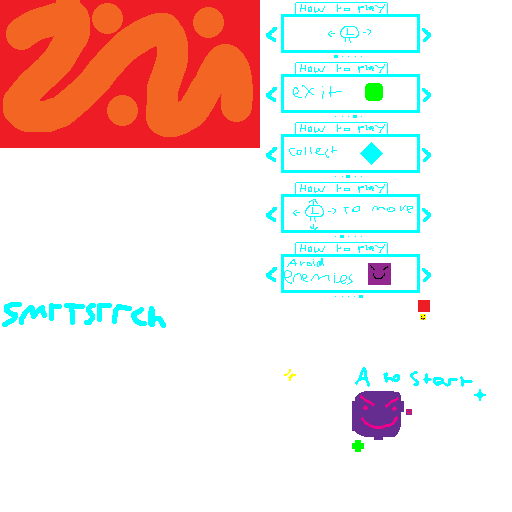 How to Play
< L >
How to Play
exit
How to Play
collect
How to Play
L to move
How to Play
Avoid
Enemies
SMrTSrrch
A to Start